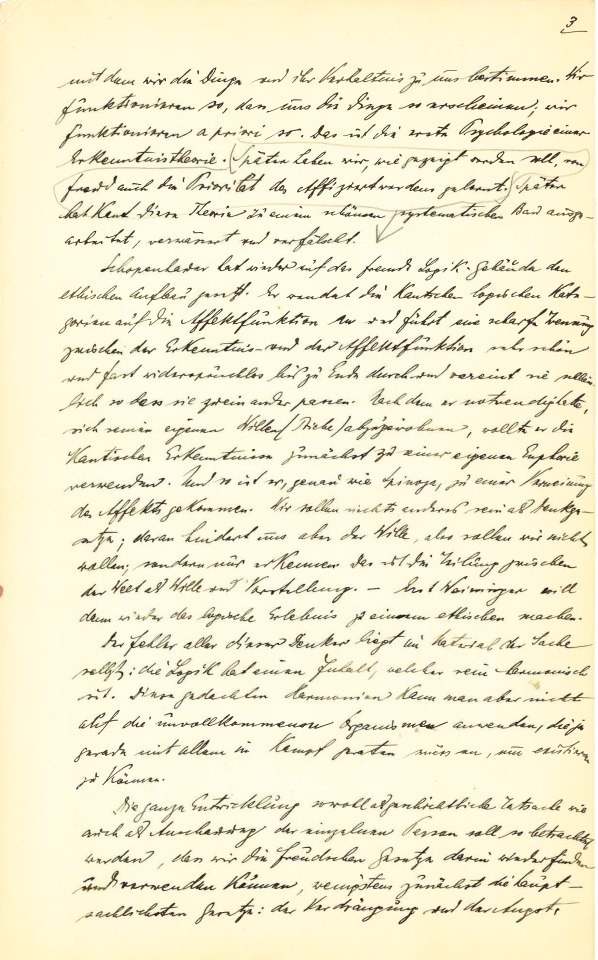 3
mit dem wir die Dinge und ihr Verhältnis zu uns bestimmen. Wir
funktionieren so, dass uns die Dinge so erscheinen; wir
funktionieren a priori so. Das ist die erste Psychologie einer
Erkenntnistheorie. (Später haben wir, wie gezeigt werden soll, von
Freud auch die Priorität des Affiziertwerdens gelernt.) Später
hat Kant diese Theorie zu einem schönen systematischen Bau ausge-
arbeitet, verwässert und verfälscht.
Schopenhauer hat wieder auf das fremde Logik-Gebäude den
ethischen Aufbau gesetzt. Er wendet die Kantschen logischen Kate-
gorien auf die Affektfunktion an und führt eine scharfe Trennung
zwischen der Erkenntnis- und der Affektfunktion sehr schön
und fast widerspruchlos bis zu Ende durch und vereint sie schliess-
lich so dass sie zueinander passen. Nachdem er notwendigte,
sich seinen eigenen Willen (Triebe) abzugewöhnen, wollte er die
Kantischen Erkenntnisse zunächst zu einer eigenen Euphorie
verwenden. Und so ist er, genau wie Spinoza, zu einer Verneinung
des Affekts gekommen. Wir sollen nichts anderes sein als Denkge-
setze; daran hindert uns aber der Wille, also sollen wir nicht
wollen; sondern nur erkennen das ist die Teilung zwischen
der Welt als Wille und Vorstellung. – Erst Weininger will
dann wieder das logische Erlebnis zu einem ethischen machen.
Der Fehler aller dieser Denker liegt im Material der Sache
selbst: die Logik hat einen Inhalt, welcher rein harmonisch
ist. Diese gedachten Harmonien kann man aber nicht
auf die unvollkommenen Organismen anwenden, die ja
gerade mit allem in Kampf geraten müssen, um existieren
zu können.
Die ganze Entwicklung sowohl als geschichtliche Tatsache wie
auch als Anschauung der einzelnen Person soll so betrachtet
werden, dass wir die Freudschen Gesetze darin wiederfinden
und verwenden können, wenigstens zunächst die haupt-
sächlichsten Gesetze: der Verdrängung und der Angst,